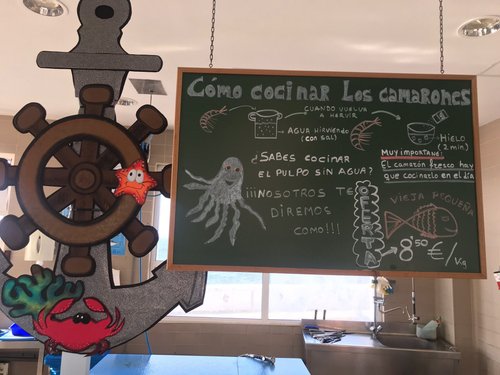 Cómo cocinar Los camarones
CUANDO VUELVA
A HERVIR
AGUA HIRVIENDO
(con sal)
HIELO
(2 min)
MUY IMPORTANTE:
El camarón fresco hay
que cocinarlo en el día
¿SABES COCINAR
EL PULPO SIN AGUA?
¡¡¡NOSOTROS TE
DIREMOS
COMO!!!
OFERTA
VIEJA PEQUEÑA
8,50 €/Kg